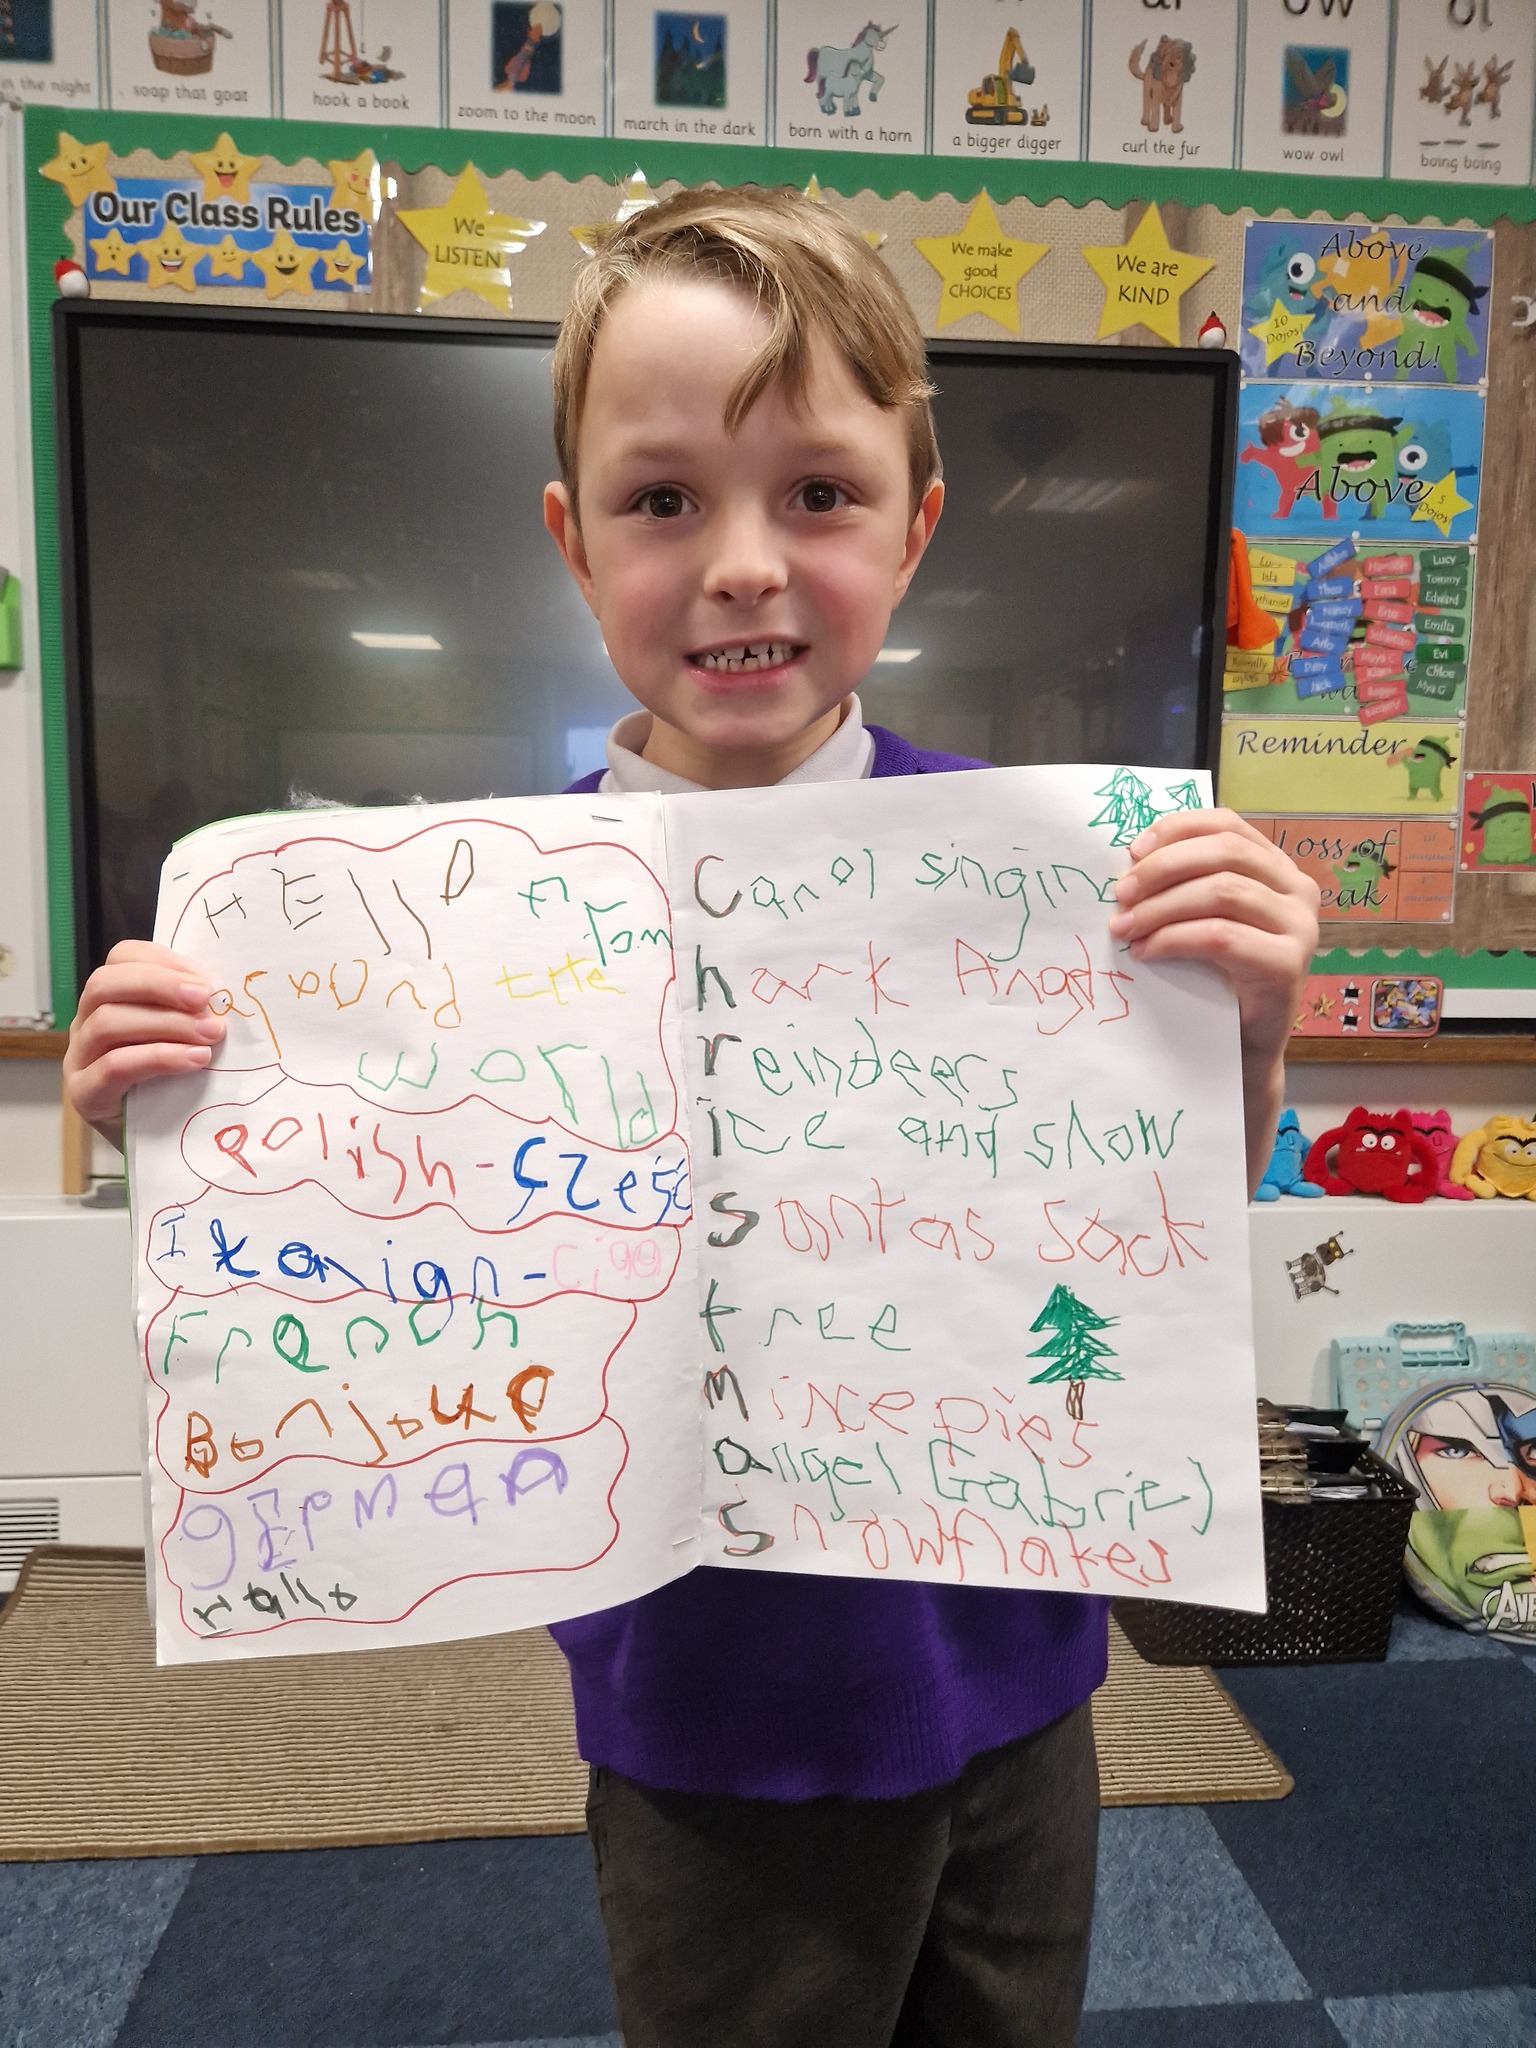 in the night
soap that goat
hook a book
zoom to the moon
march in the dark
born with a horn
a bigger digger
curl the fur
ow
wow owl
oi
boing boing
Our Class Rules
We
LISTEN
We make
good
CHOICES
We are
KIND
Above
and
Beyond!
10
Dojos!
Above
5
Dojos!
Isla
Theo
Nancy
Arlo
Daisy
Jack
Maya C
Lucy
Tommy
Edward
Emilia
Evi
Chloe
Mya G
Reminder
Loss of
eak
HEllo
from
around the
world
polish - cześć
Itanign - ciao
French
Bonjour
gErman
rallo
Carol singing
hark Angels
reindeers
ice and snow
santas sack
tree
mixcepies
angel Gabriel
Snowflakes
AVE